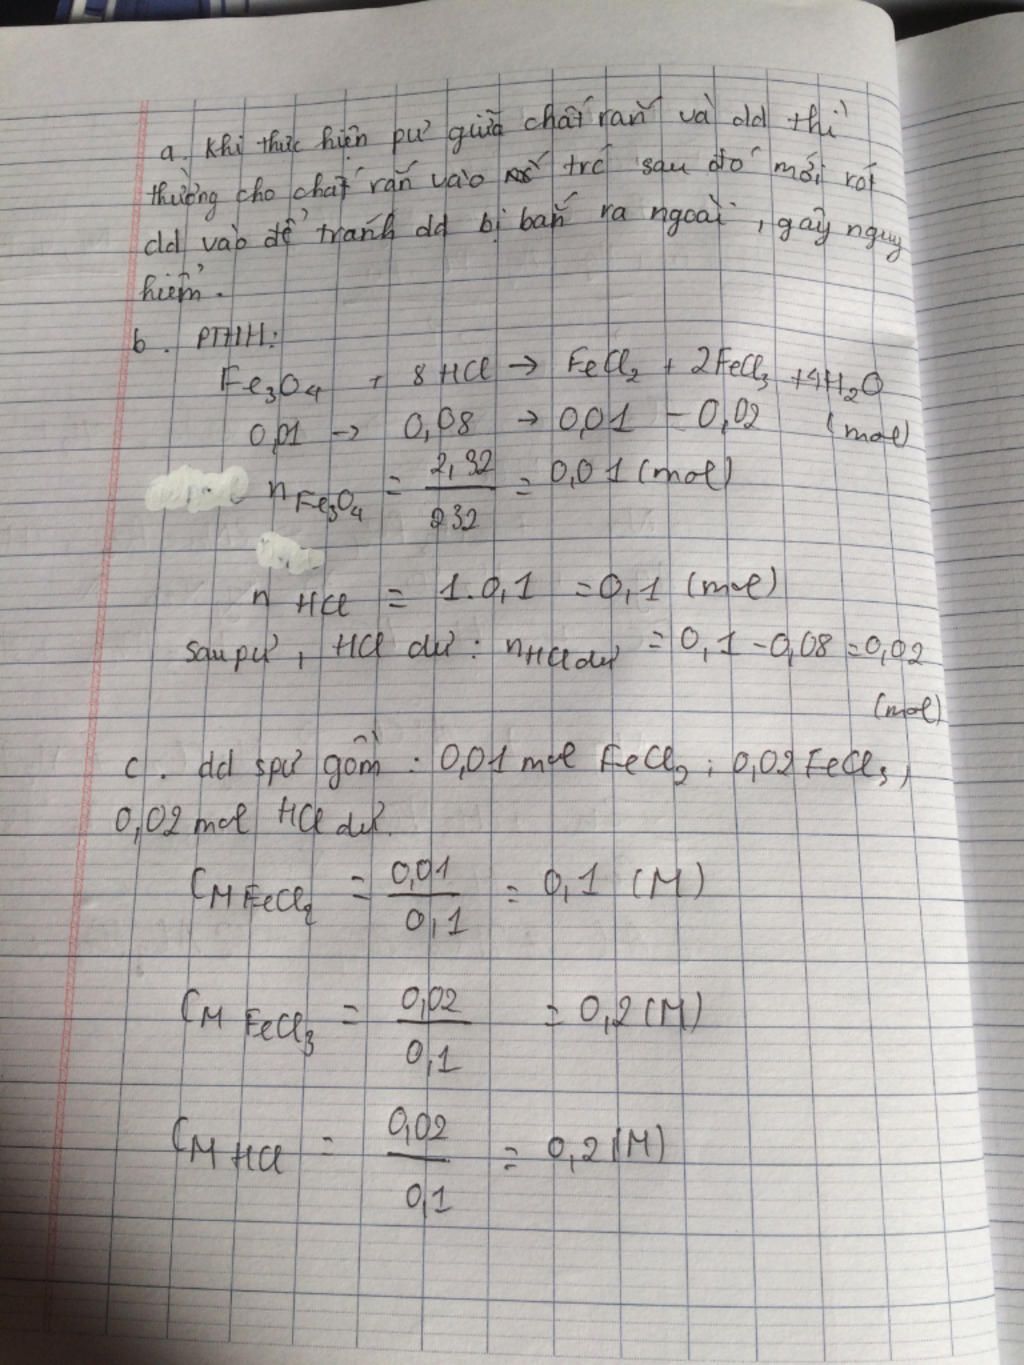 a. Khi thực hiện pư giữa chất rắn và dd thì
thường cho chất rắn vào trc sau đó mới rót
dd vào để tránh dd bị bắn ra ngoài, gây nguy
hiểm.
b. PTHH:
Fe₃O₄ + 8HCl → FeCl₂ + 2FeCl₃ + 4H₂O
0,01 → 0,08 → 0,01 - 0,02 (mol)
n Fe₃O₄ = 2,32/232 = 0,01 (mol)
n HCl = 1.0,1 = 0,1 (mol)
sau pư, HCl dư: n HCl dư = 0,1 - 0,08 = 0,02
(mol)
c. dd spư gồm: 0,01 mol FeCl₂; 0,02 FeCl₃,
0,02 mol HCl dư.
CM FeCl₂ = 0,01/0,1 = 0,1 (M)
CM FeCl₃ = 0,02/0,1 = 0,2 (M)
CM HCl = 0,02/0,1 = 0,2 (M)